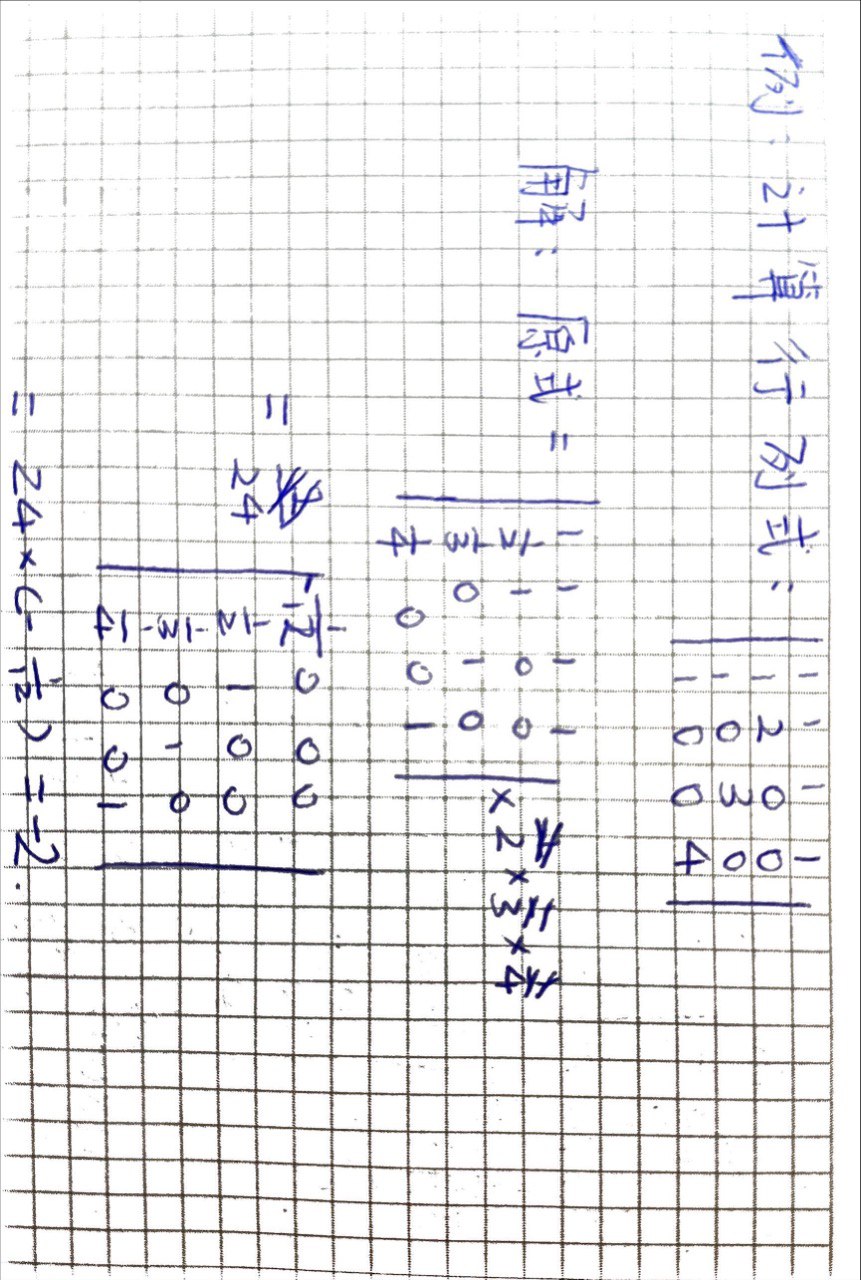 例：计算行列式：
| 1 1 1 1 |
| 1 2 0 0 |
| 1 0 3 0 |
| 1 0 0 4 |
解：原式 = | 1 1 1 1 |
| 1/2 1 0 0 | × 2 × 3 × 4
| 1/3 0 1 0 |
| 1/4 0 0 1 |
= 24 | -1/12 0 0 0 |
| 1/2 1 0 0 |
| 1/3 0 1 0 |
| 1/4 0 0 1 |
= 24×(-1/12) = -2.